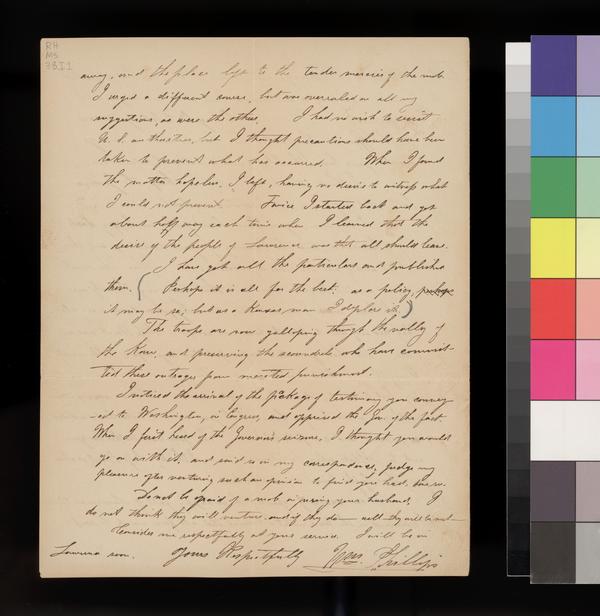 RH
MS
3B.I1
away, and the place left to the tender mercies of the mob.
I urged a different course, but was overruled in all my
suggestions, as were the others. I had no wish to resist
U. S. authorities, but I thought precautions should have been
taken to prevent what has occurred. When I found
the matter hopeless, I left, having no desire to witness what
I could not prevent. Twice I started back and got
about half way each time when I learned that the
desire of the people of Lawrence was that all should leave.
I have got all the particulars and published
them. (Perhaps it is all for the best. as a policy,
it may be so; but as a Kansas man I deplore it.)
The troops are now galloping through the valley of
the Kaw, and preserving the scoundrels who have commit-
ted these outrages from merited punishment.
I noticed the arrival of the package of testimony you convey
-ed to Washington, in Congress, and apprised the Gov. of the fact.
When I first heard of the Governor's seizure, I thought you would
go on with it, and said so in my correspondence, judge my
pleasure after venturing such an opinion to find you had done so.
Do not be afraid of a mob injuring your husband. I
do not think they will venture, and if they do— well they will be not—
Consider me respectfully at your service. I will be in
Lawrence soon. Yours Respectfully Wm. Phillips